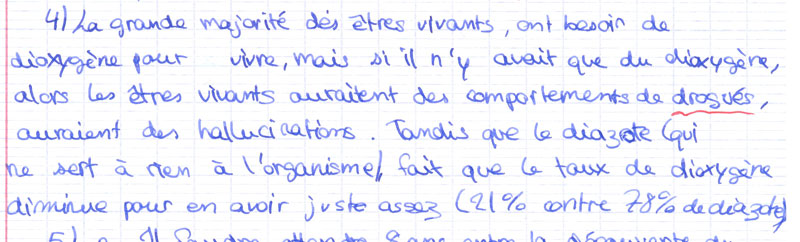 4) La grande majorité des êtres vivants, ont besoin de
dioxygène pour vivre, mais si il n'y avait que du dioxygène,
alors les êtres vivants auraitent des comportements de drogués,
auraient des hallucinations. Tandis que le diazote (qui
ne sert à rien à l'organisme), fait que le taux de dioxygène
diminue pour en avoir juste assez (21% contre 78% de diazote)
5) a Il faudra attendre 8 ans entre la découverte du